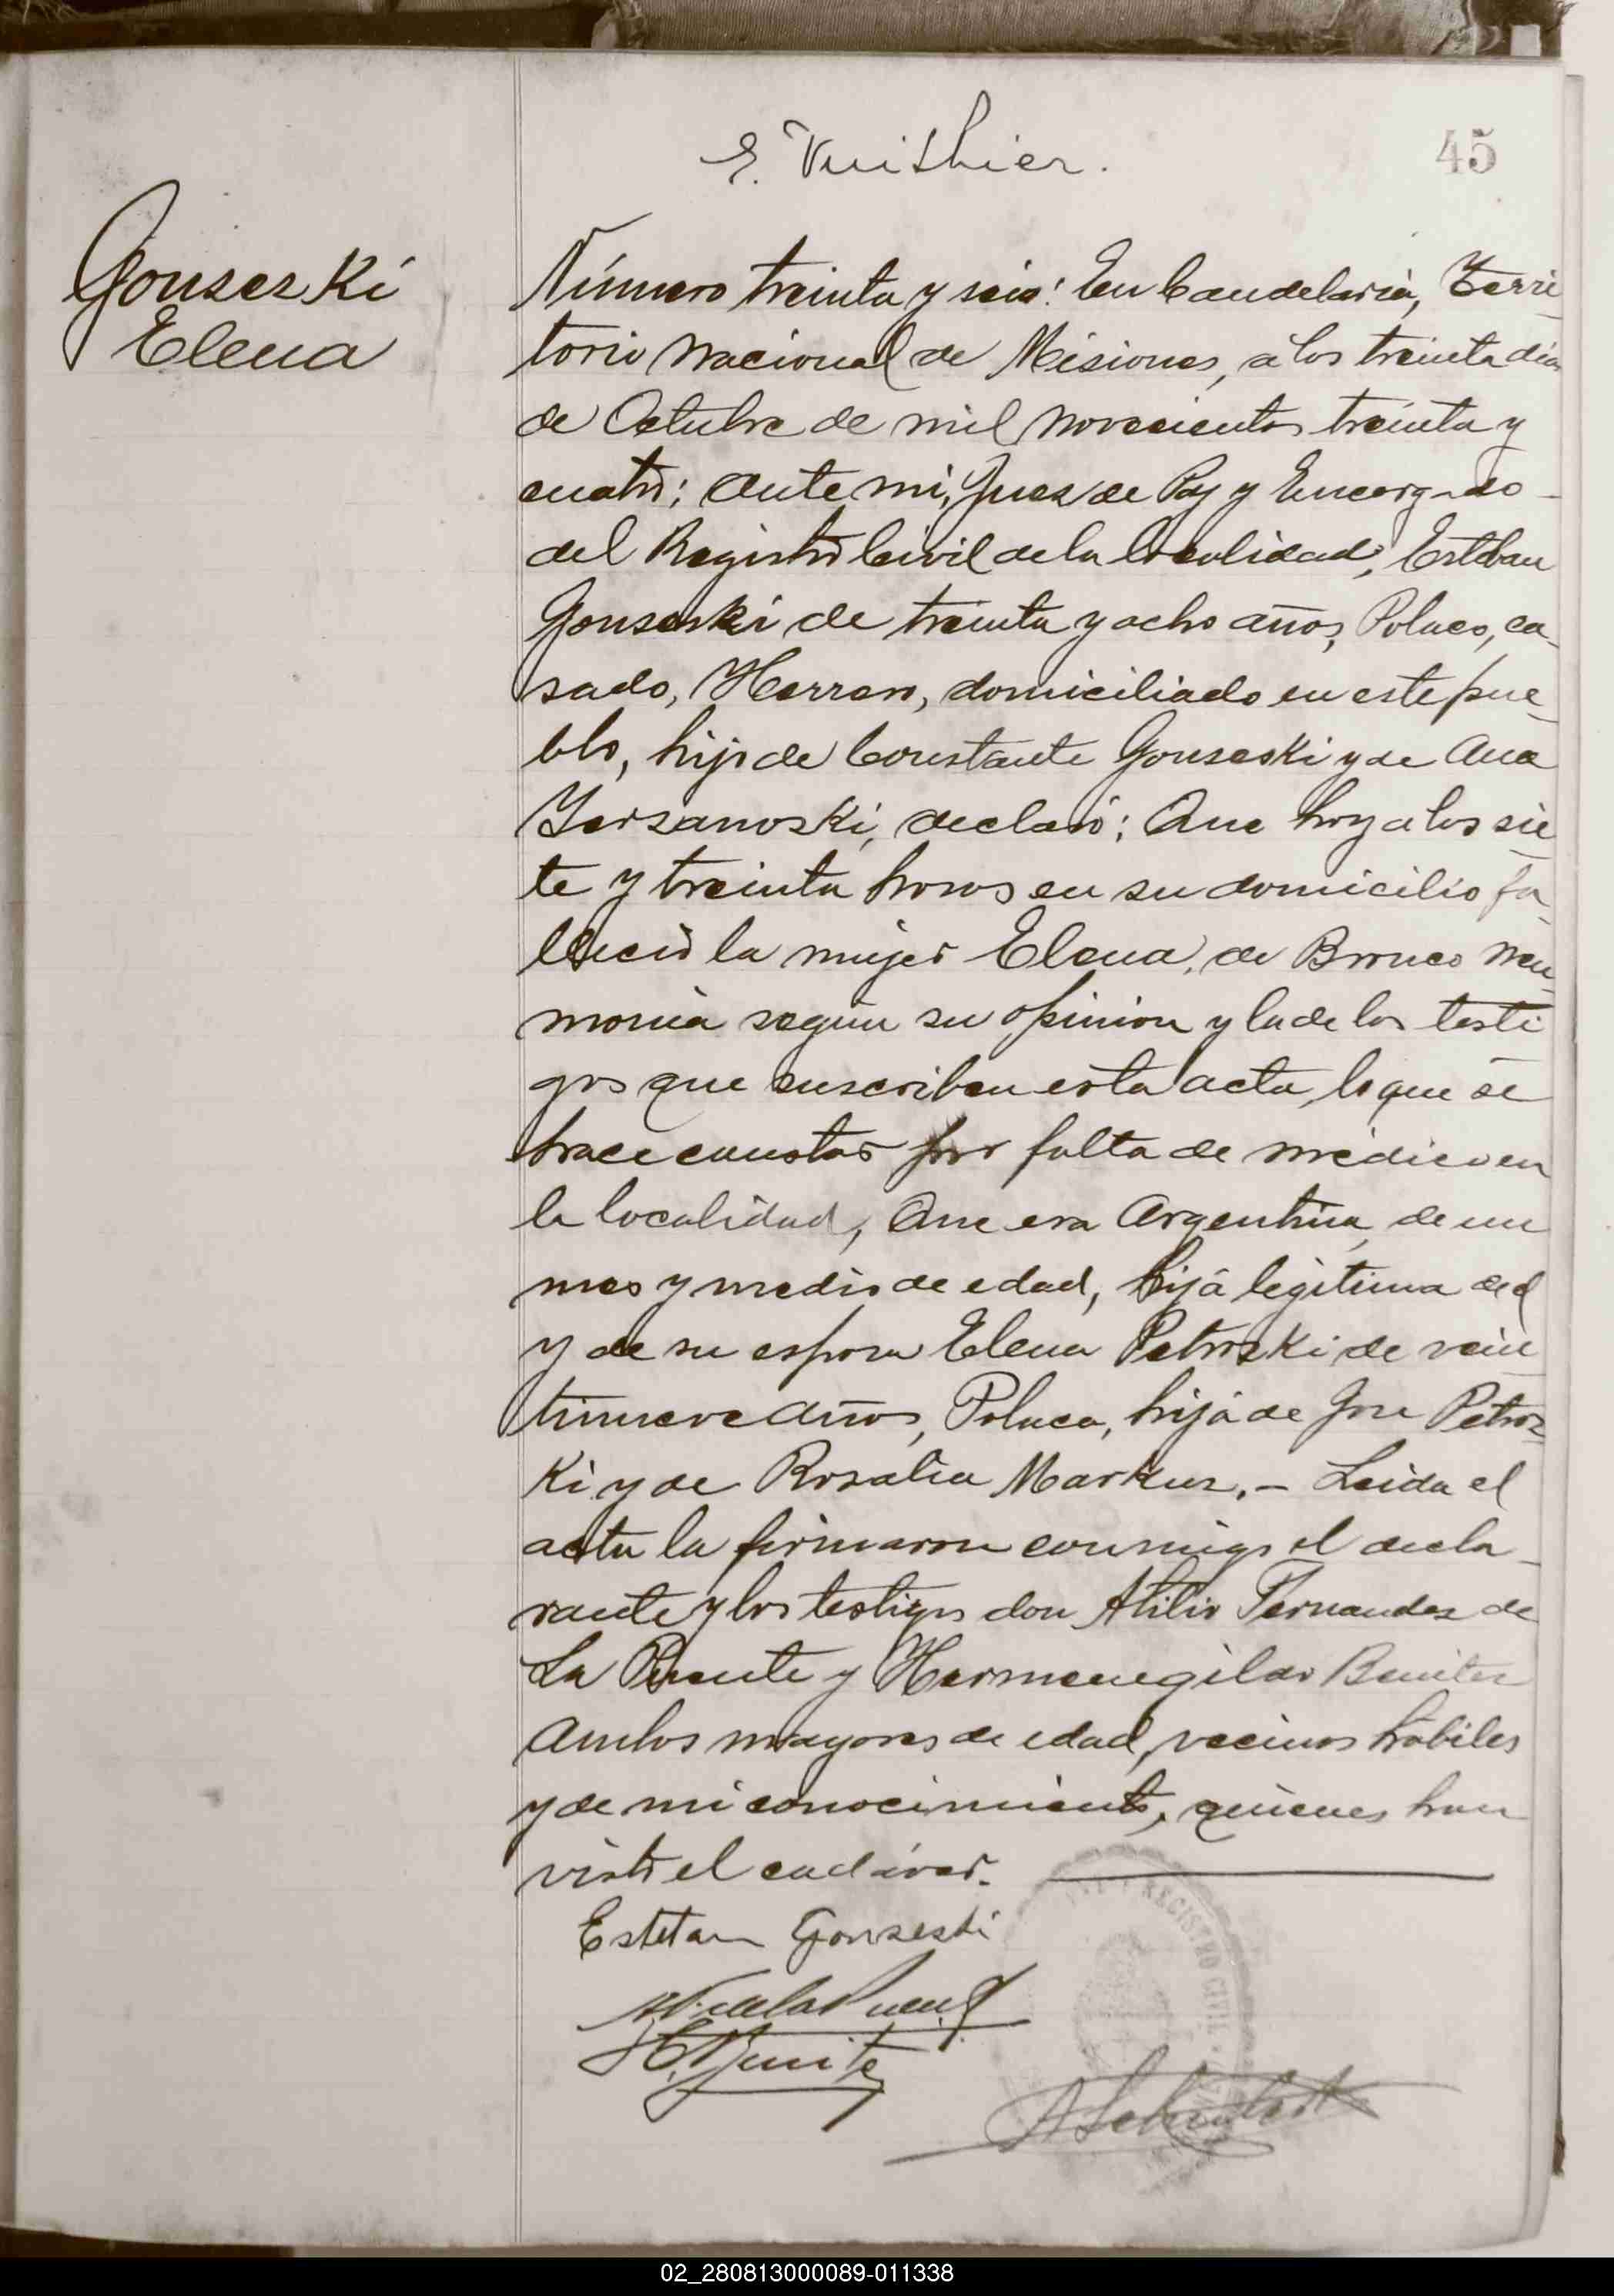 E. Vuithier.
45
Gonseski
Elena
Número treinta y seis: En Candelaria, Terri-
torio Nacional de Misiones, á los treinta dias
de Octubre de mil novecientos treinta y
cuatro; ante mi, Juez de Paz y Encargado
del Registro Civil de la localidad, Esteban
Gonseski de treinta y ocho años, Polaco, ca-
sado, Herrero, domiciliado en este pue-
blo, hijo de Constante Gonseski y de Ana
Jarsanoski, declaró: Que hoy a las sie-
te y treinta horas en su domicilio fa-
lleció la mujer Elena, de Bronco Neu-
monia segun su opinion y la de los testi
gos que suscriben esta acta, lo que se
hace constar por falta de médico en
la localidad, Que era Argentina, de un
mes y medio de edad, hija legítima de el
y de su esposa Elena Petroski de vein
tinueve años, Polaca, hija de Jose Petros-
ki y de Rosalia Markus.- Leida el
acta la firmaron conmigo el decla-
rante y los testigos don Atilio Fernandez de
La Puente y Hermenegildo Benitez
Ambos mayores de edad, vecinos hábiles
y de mi conocimiento, quienes han
visto el cadáver.
Esteban Gonseski
de la Puente
H. Benitez
REGISTRO CIVIL
02_280813000089-011338